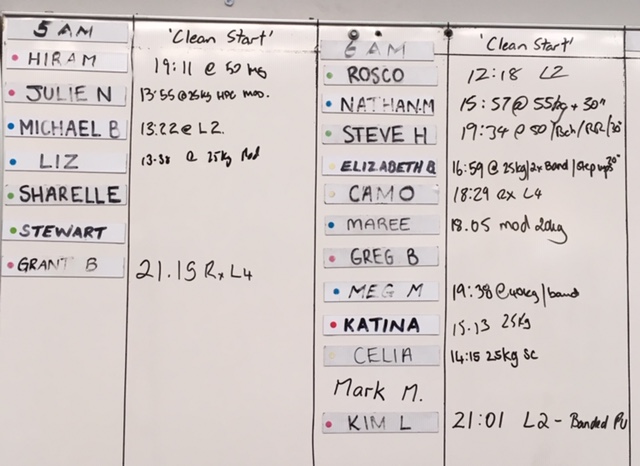 5 AM 'Clean Start'
HIRAM 19:11 @ 50 kg
JULIE N 13:55 @ 25kg HPC mod.
MICHAEL B 13:22 @ L2.
LIZ 13:38 @ 25kg
SHARELLE
STEWART
GRANT B 21.15 Rx L4
6 AM 'Clean Start'
ROSCO 12:18 L2
NATHAN.M 15:57 @ 55kg + 30"
STEVE H 19:34 @ 50 / /RR/30"
ELIZABETH B 16:59 @ 25kg/2x Band / Step ups 20"
CAMO 18:29 Rx L4
MAREE 18.05 mod 20kg
GREG B
MEG M 19:38 @ 40kg / band
KATINA 15.13 25kg
CELIA 14:15 25kg SC
Mark M.
KIM L 21:01 L2 - Banded PU